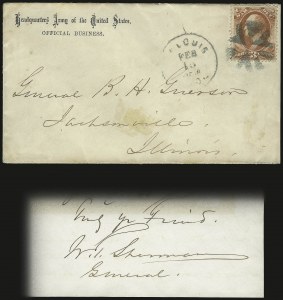 Headquarters Army of the United States,
OFFICIAL BUSINESS.
LOUIS
FEB
General B. H. Grierson
Jacksonville
Illinois.
Truly yr Friend.
W. T. Sherman
General.